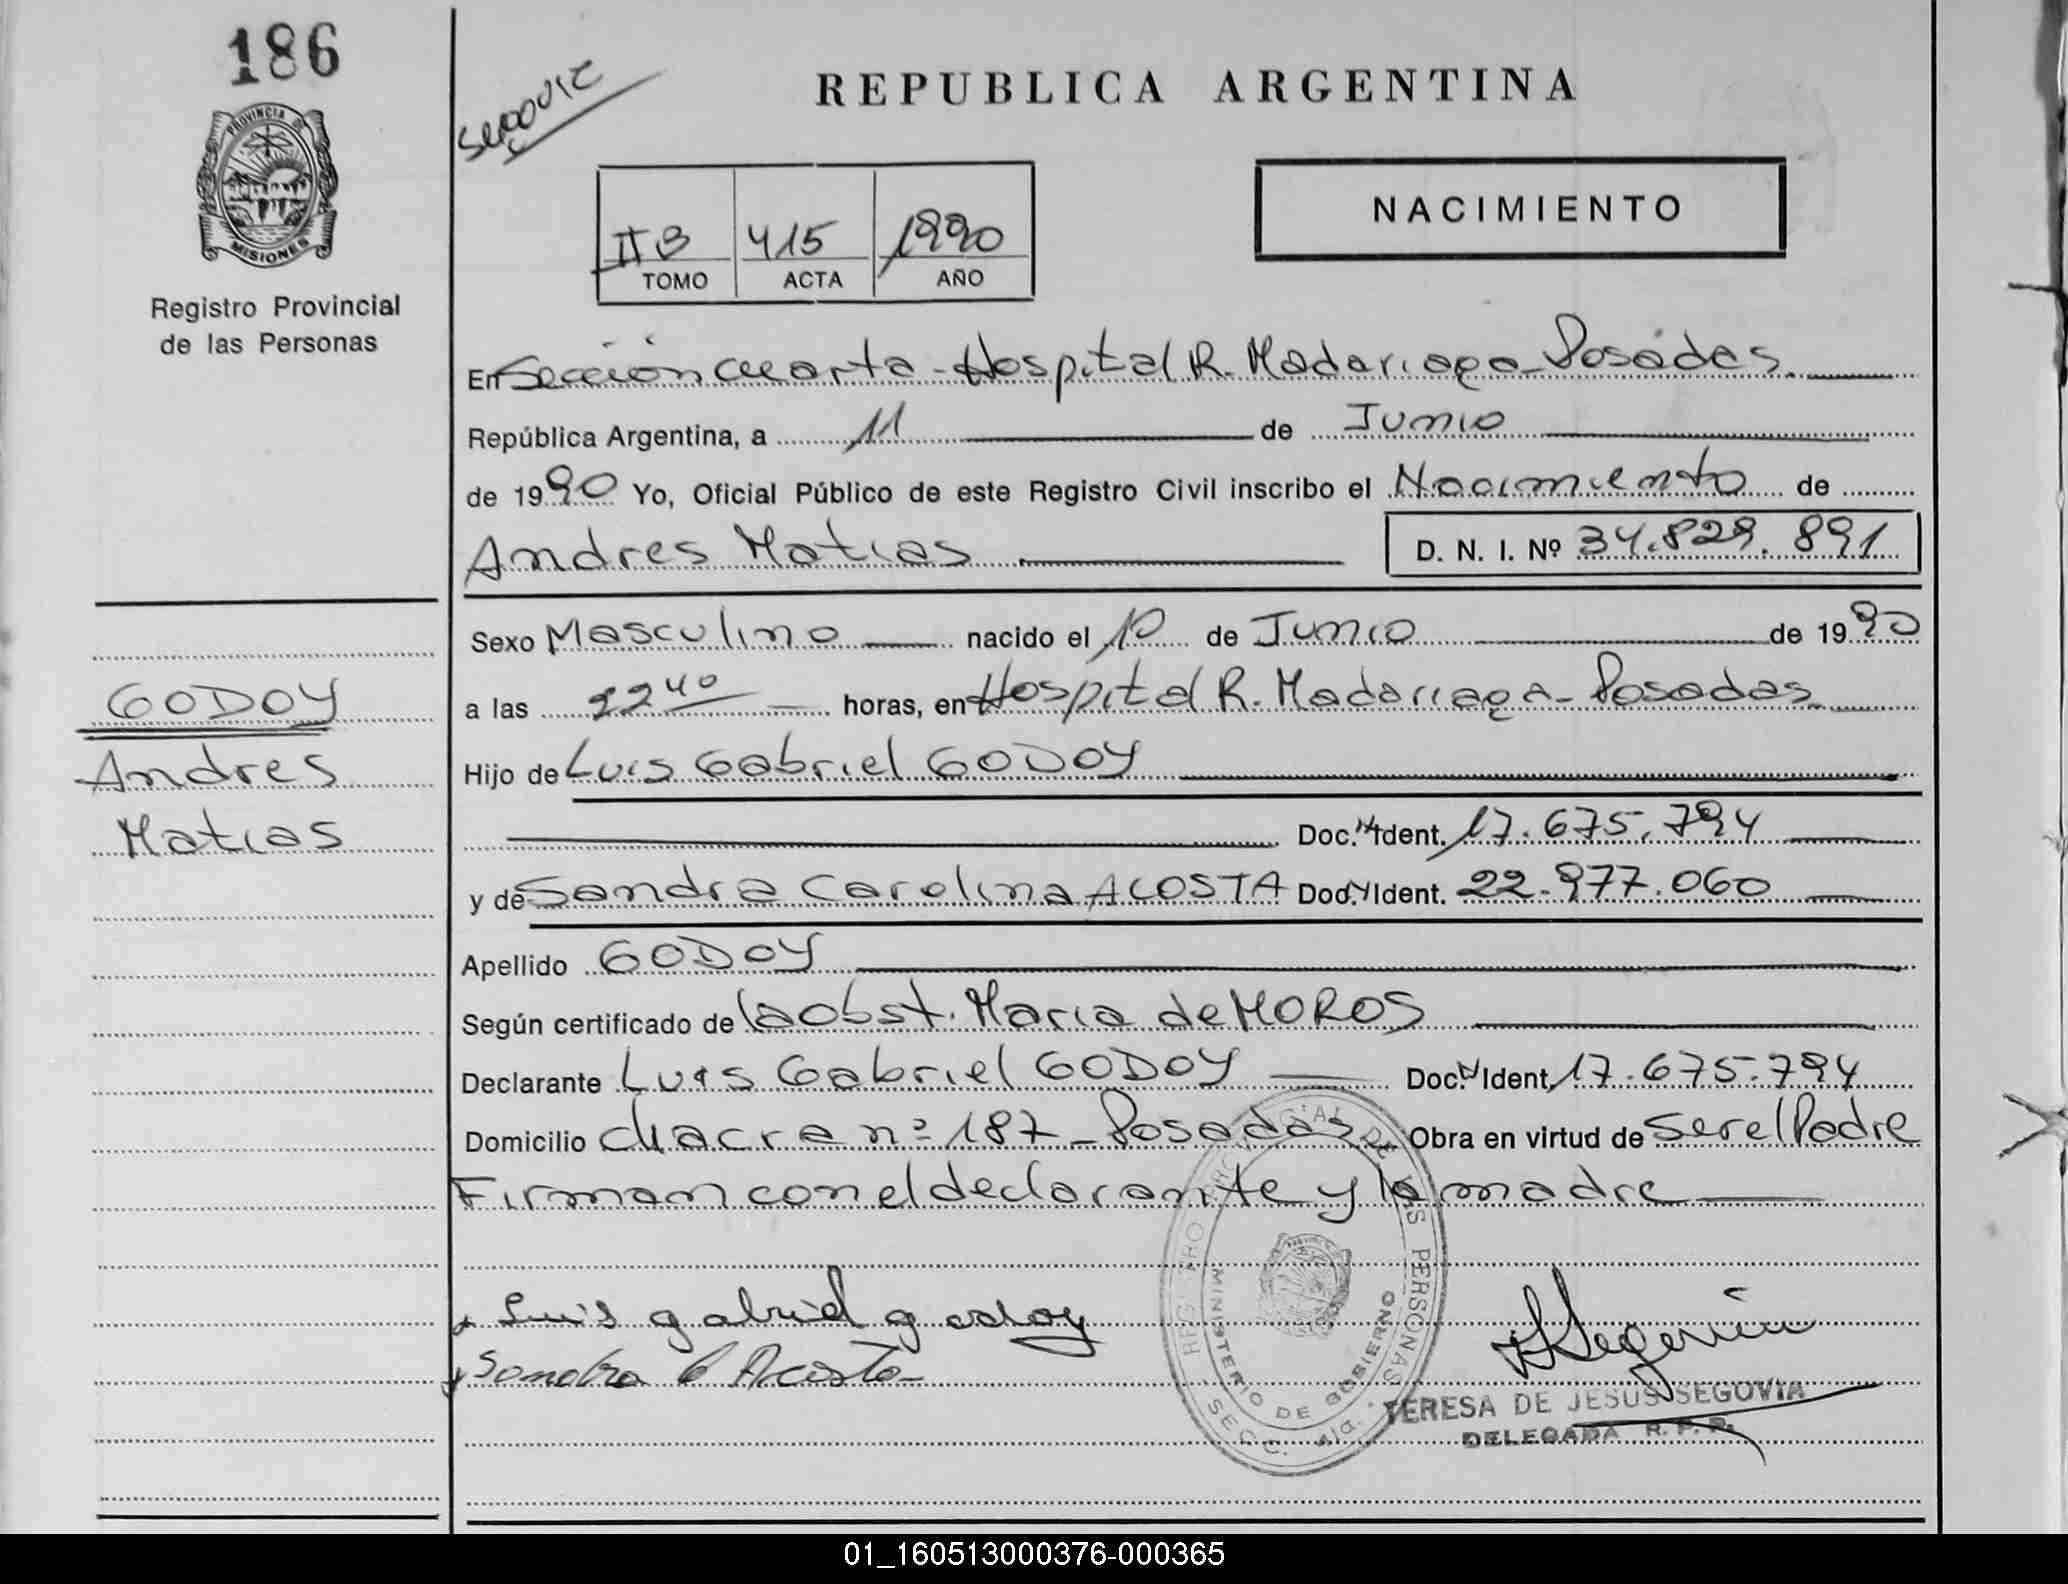 186
PROVINCIA DE
MISIONES
Registro Provincial
de las Personas
GODOY
Andres
Matias
REPUBLICA ARGENTINA
IIB 415 1990
TOMO ACTA AÑO
NACIMIENTO
En Sección cuarta - Hospital R. Madariaga - Posadas.
República Argentina, a 11 de Junio
de 1990 Yo, Oficial Público de este Registro Civil inscribo el Nacimiento de
Andres Matias D. N. I. Nº 34.829.891
Sexo Masculino nacido el 10 de Junio de 1990
a las 22 40 horas, en Hospital R. Madariaga - Posadas
Hijo de Luis Gabriel GODOY
Doc. N Ident. 17.675.794
y de Sandra Carolina ACOSTA Doc. N Ident. 22.977.060
Apellido GODOY
Según certificado de la obst. Maria de MOROS
Declarante Luis Gabriel GODOY Doc. N Ident. 17.675.794
Domicilio chacra nº 187 - Posadas Obra en virtud de ser el Padre
Firman con el declarante y la madre
Luis gabriel godoy
Sandra C Acosta
REGISTRO PROVINCIAL DE LAS PERSONAS
MINISTERIO DE GOBIERNO
SECC. 4ta.
TERESA DE JESUS SEGOVIA
DELEGADA R. P. P.
01_160513000376-000365